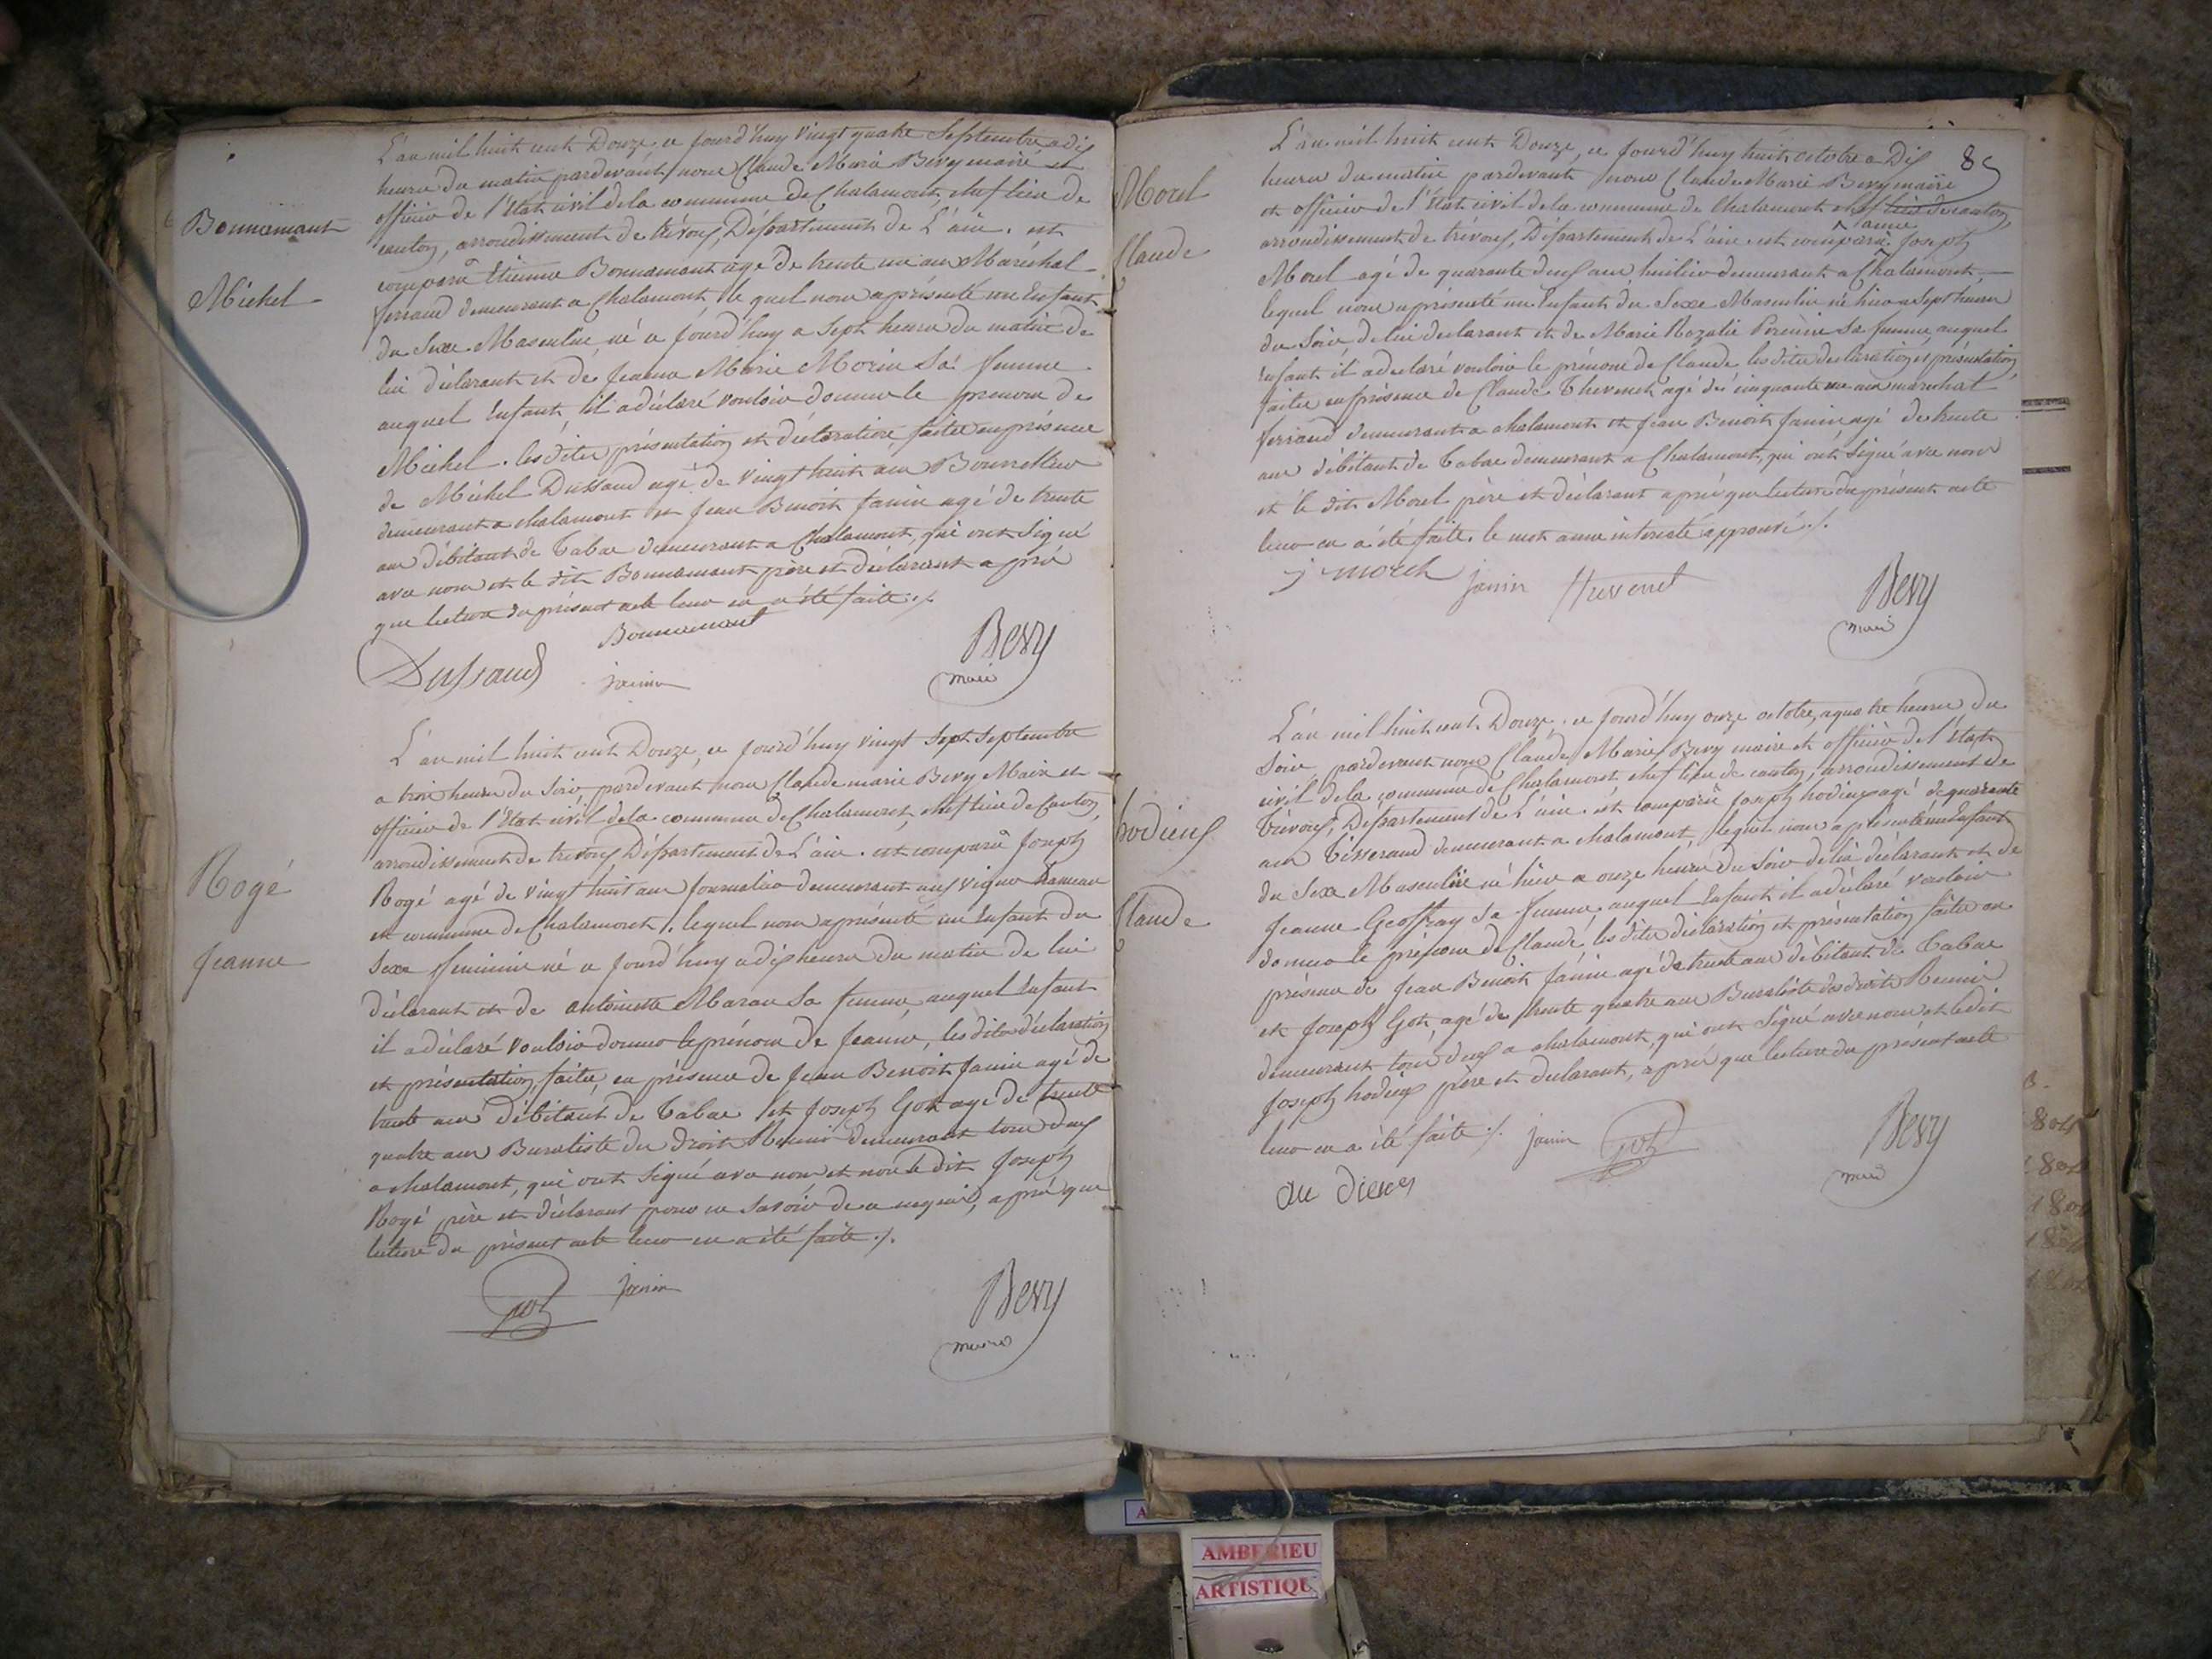 Bonnamant
Michel
L'an mil huit cent Douze, ce jourd'huy vingt quatre Septembre a dix
heures du matin pardevant nous Claude Marie Bevy maire et
officier de l'état civil de la commune de Chalamont, chef lieu de
canton, arrondissement de trévoux, Département de L'ain. est
comparû Etienne Bonnamant agé de trente un ans Maréchal
ferrand demeurant a Chalamont, le quel nous a présenté un Enfant
du Sexe Masculin né ce jourd'huy a Sept heures du matin de
lui déclarant et de Jeanne Marie Morin Sa femme
auquel Enfant, il a déclaré vouloir donner le prenom de
Michel. les dites présentation et déclaration faites en présence
de Michel Dussaud agé de vingt huit ans Bourrellier
demeurant a chalamont et Jean Benoit Janin agé de trente
ans débitant de Tabac demeurant a Chalamont, qui ont Signé
avec nous et le dit Bonnamant père et déclarant après
que lecture du présent acte leur en a été faite ./.
Bonnamant
Dussaud janin Bevy
maire
Rogé
Jeanne
L'an mil huit cent Douze, ce jourd'huy vingt Sept Septembre
a trois heures du Soir, pardevant nous Claude marie Bevy Maire et
officier de l'Etat civil de la commune de Chalamont, chef lieu de Canton,
arrondissement de trevoux Département de L'ain. est comparû Joseph
Rogé agé de vingt huit ans Journalier demeurant aux vignes hameau
et commune de Chalamont, lequel nous a présenté un Enfant du
Sexe feminin né ce jourd'huy a dix heures du matin de lui
déclarant et de antoinette Maran Sa femme, auquel Enfant
il a déclaré vouloir donner le prénom de Jeanne, les dites déclaration
et présentation, faites, en présence de Jean Benoit Janin agé de
trente ans débitant de Tabac et Joseph Got agé de trente
quatre ans Buraliste des droits Reunis demeurant tous deux
a chalamont, qui ont Signé avec nous et non le dit Joseph
Rogé père et déclarant pour ne Savoir de ce requis, après que
lecture du présent acte leur en a été faite ./.
Got janin Bevy
maire
85
Morel
Claude
L'an mil huit cent Douze, ce jourd'huy huit octobre a Dix
heures du matin pardevant nous Claude Marie Bevy maire
et officier de l'Etat civil de la commune de Chalamont chef lieu de canton,
arrondissement de trévoux, Département de L'ain. est comparû Joseph
Morel agé de quarante deux ans, huilier demeurant a Chalamont,
lequel nous a présenté un Enfant du Sexe Masculin né hier a Sept heures
du Soir, de lui declarant et de Marie Rozalie Sa femme auquel
Enfant il a declaré vouloir le prénom de Claude les dites declaration et présentation,
faites en présence de Claude Thevenet agé de cinquante un ans marechal
ferrand demeurant a chalamont et Jean Benoit Janin agé de trente
ans débitant de Tabac demeurant a Chalamont, qui ont Signé avec nous
et le dit Morel père et déclarant après que lecture du présent acte
leur en a été faite. le mot intercalé approuvé ./.
j morel janin thevenet Bevy
maire
hodieux
Claude
L'an mil huit cent Douze, ce jourd'huy onze octobre, a quatre heures du
Soir, pardevant nous Claude Marie Bevy maire et officier de l'état
civil de la commune de Chalamont, chef lieu de canton, arrondissement de
Trévoux, Département de L'ain. est comparû Joseph hodieux agé de quarante
ans Tisserand demeurant a chalamont, lequel nous a présenté un Enfant
du Sexe Masculin né hier a onze heures du Soir de lui déclarant et de
Jeanne Geoffray Sa femme auquel Enfant il a déclaré vouloir
donner le prénom de Claude, les dites déclaration et présentation faites en
présence de Jean Benoit Janin agé de trente ans débitant de Tabac
et Joseph Got, agé de trente quatre ans Buraliste des droits Reunis
demeurant tous deux a chalamont, qui ont Signé avec nous et le dit
Joseph hodieux père et declarant, après que lecture du présent acte
leur en a été faite ./. janin Got Bevy
maire
AMBERIEU
ARTISTIQU